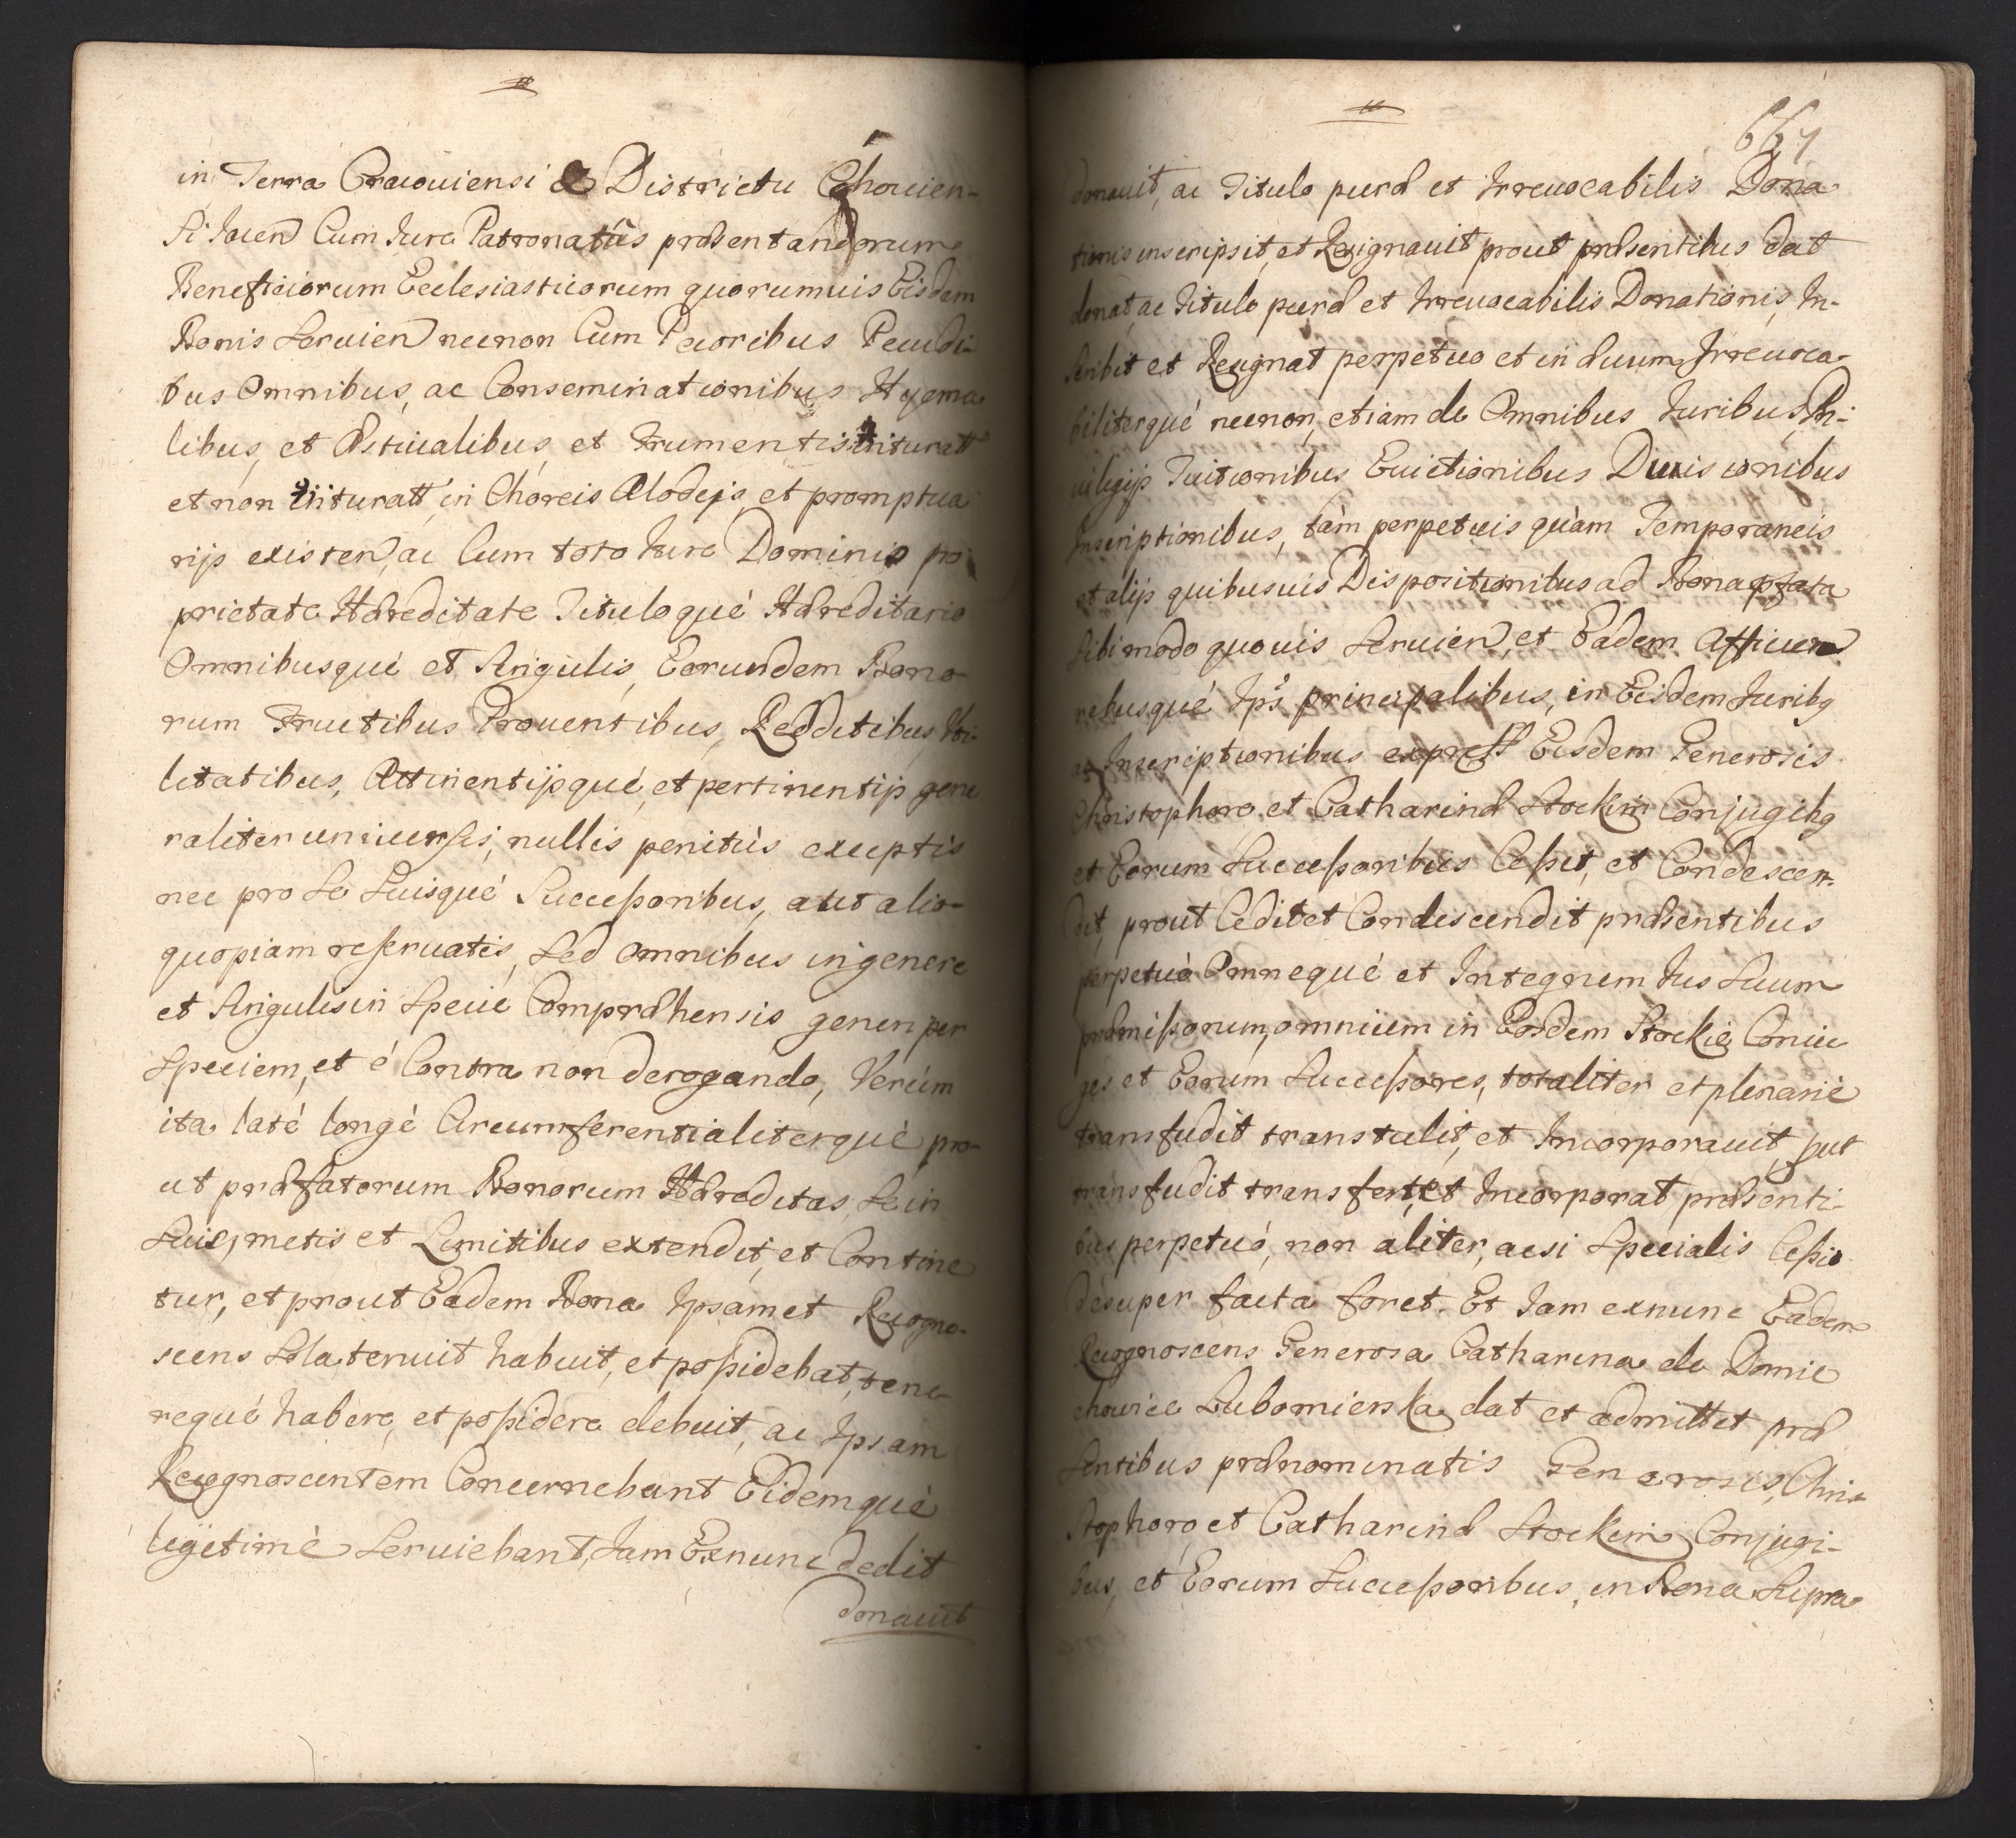 in Terra Cracouiensi & Districtu Czchouien-
si Iacen Cum Iure Patronatûs præsentandorum
Beneficiorum Ecclesiasticorum quorumuis Eisdem
Bonis Seruien necnon Cum Pecoribus Pecudi-
bus Omnibus, ac Conseminationibus Hyema
libus, et Æstiualibus, et Frumentis trituratt
et non trituratt, in Horreis Alodijs, et promptua
rijs existen, ac Cum toto Iure Dominio pro
prietate Hæreditate Tituloqué Hæreditario
Omnibusqué et Singulis, Eorundem Bono
rum Fructibus Prouentibus, Redditibus Vti-
litatibus, Attinentijsqué, et pertinentijs gene
raliter uniuersis, nullis penitùs exceptis
nec pro Se Suisqué Successoribus, aut alio
quopiam reseruatis, Sed Omnibus in genere
et Singulis in Specie Compræhensis genen per
Speciem, et é Contra non derogando, Verùm
ita laté longé Circumferentialiterqué pro-
ut præfatorum Bonorum Hæreditas, Se in
Suis, metis et Limitibus extendit, et Contine
tur, et prout Eadem Bona Ipsamet Recogno-
scens Sola, tenuit habuit, et possidebat, tene
requé habere, et possidere debuit, ac Ipsam
Recognoscentem Concernebant Eidemqué
legitimè Seruiebant, Iam Exnunc dedit
donauit
667
donauit, ac Titulo puræ et Irreuocabilis Dona
tionis inscripsit, et Resignauit prout præsentibus dat
donat, ac Titulo puræ et Irreuocabilis Donationis, In-
scribit et Resignat perpetuo et in æuum, Irreuoca-
biliterqué necnon, etiam de Omnibus Iuribus, Pri-
uilegijs Tuitionibus Euictionibus Diuisionibus
Inscriptionibus, tàm perpetuis quàm Temporaneis
et alijs quibusuis Dispositionibus ad Bona pfata
Sibi modo quouis Seruien, et Eadem Afficien
rebusqué Ips principalibus, in Eisdem Iuribq
ac Inscriptionibus express Eisdem Generosis
Christophoro et Catharinæ Stockim Conjugibq
et Eorum Successoribus Cessit, et Condescen-
dit, prout Cedit et Condescendit præsentibus
perpetuò Omnequé et Integrum Ius Suum
præmissorum, omnium in Eosdem Stockie Coniu
ges et Eorum Successores, totaliter et plenariè
transfudit transtulit, et Incorporauit, put
transfudit transfert et Incorporat præsenti-
bus perpetuó, non áliter, acsi Specialis Cessio
desuper facta foret. Et Iam exnunc Eadem
Recognoscens Generosa Catharina de Domie
chowice Lubomierska dat et admittet præ
sentibus prænominatis Generosis, Chri-
stophoro et Catharinæ Stockim Conjugi-
bus, et Eorum Successoribus, in Bona Supra